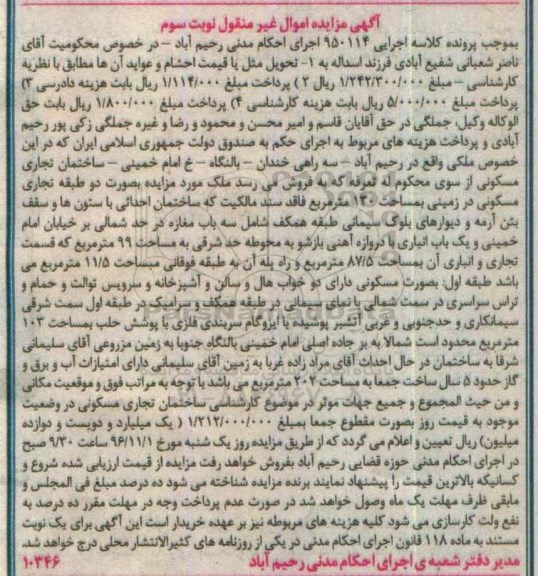 آگهی مزایده اموال غیر منقول نوبت سوم
بموجب پرونده کلاسه اجرایی ۹۵۰۱۱۴ اجرای احکام مدنی رحیم آباد – در خصوص محکومیت آقای
ناصر شعبانی شفیع آبادی فرزند اسداله به ۱- تحویل مثل یا قیمت احشام و عواید آن ها مطابق با نظریه
کارشناسی – مبلغ ۱/۲۴۲/۳۰۰/۰۰۰ ریال ۲ ) پرداخت مبلغ ۱/۱۱۴/۰۰۰ ریال بابت هزینه دادرسی ۳)
پرداخت مبلغ ۵/۰۰۰/۰۰۰ ریال بابت هزینه کارشناسی ۴) پرداخت مبلغ ۱/۸۰۰/۰۰۰ ریال بابت حق
الوکاله وکیل، جملگی در حق آقایان قاسم و امیر محسن و محمود و رضا و غیره جملگی زکی پور رحیم
آبادی و پرداخت هزینه های مربوط به اجرای حکم به صندوق دولت جمهوری اسلامی ایران که در این
خصوص ملکی واقع در رحیم آباد – سه راهی خندان – بالنگاه – خ امام خمینی – ساختمان تجاری
مسکونی از سوی محکوم له تعرفه که به فروش می رسد ملک مورد مزایده بصورت دو طبقه تجاری
مسکونی در زمینی بمساحت ۱۳۰ مترمربع فاقد سند مالکیت که ساختمان احداثی با ستون ها و سقف
بتن آرمه و دیوارهای بلوک سیمانی طبقه همکف شامل سه باب مغازه در حد شمالی بر خیابان امام
خمینی و یک باب انباری با دروازه آهنی بازشو به محوطه حد شرقی به مساحت ۹۹ مترمربع که قسمت
تجاری و انباری آن بمساحت ۸۷/۵ مترمربع و راه پله آن به طبقه فوقانی مساحت ۱۱/۵ مترمربع می
باشد طبقه اول: بصورت مسکونی دارای دو خواب هال و سالن و آشپزخانه و سرویس توالت و حمام و
تراس سراسری در سمت شمالی با نمای سیمانی در طبقه همکف و سرامیک در طبقه اول سمت شرقی
سیمانکاری و حدجنوبی و غربی آستر پوشیده با ایزوگام سربندی فلزی با پوشش حلب بمساحت ۱۰۳
مترمربع محدود است شمالا به بر جاده اصلی امام خمینی بالنگاه جنوبا به زمین مزروعی آقای سلیمانی
شرقا به ساختمان در حال احداث آقای مراد زاده غربا به زمین آقای سلیمانی دارای امتیازات آب و برق و
گاز حدود ۵ سال ساخت جمعا به مساحت ۲۰۲ مترمربع می باشد با توجه به مراتب فوق و موقعیت مکانی
و من حیث المجموع و جمیع جهات موثر در موضوع کارشناسی ساختمان تجاری مسکونی در وضعیت
موجود به قیمت روز بصورت مقطوع جمعا بمبلغ ۱/۲۱۲/۰۰۰/۰۰۰ ( یک میلیارد و دویست و دوازده
میلیون) ریال تعیین و اعلام می گردد که از طریق مزایده روز یک شنبه مورخ ۹۶/۱۱/۱ ساعت ۹/۳۰ صبح
در اجرای احکام مدنی حوزه قضایی رحیم آباد بفروش خواهد رفت مزایده از قیمت ارزیابی شده شروع و
کسانیکه بالاترین قیمت را پیشنهاد نمایند برنده مزایده شناخته می شود ده درصد مبلغ فی المجلس و
مابقی ظرف مهلت یک ماه وصول خواهد شد در صورت عدم پرداخت وجه در مهلت مقرر ده درصد به
نفع ولت کارسازی می شود کلیه هزینه های مربوطه نیز بر عهده خریدار است این آگهی برای یک نوبت
مستند به ماده ۱۱۸ قانون اجرای احکام مدنی در یکی از روزنامه های کثیرالانتشار محلی درج خواهد شد.
مدیر دفتر شعبه ی اجرای احکام مدنی رحیم آباد ۱۰۳۴۶